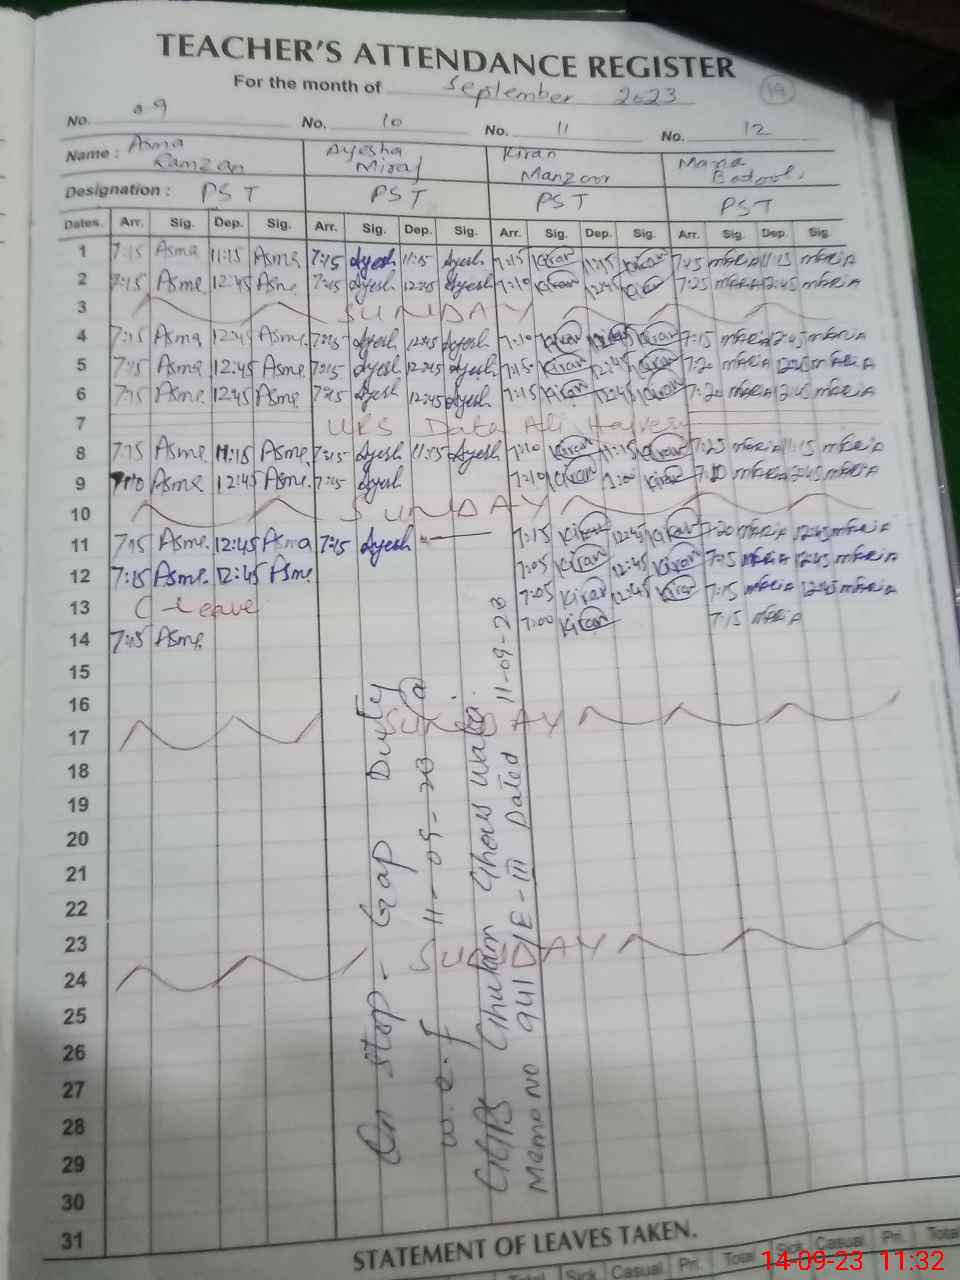 TEACHER'S ATTENDANCE REGISTER
For the month of September 2023 19
No. 09 No. 10 No. 11 No. 12
Name : Asma Ramzan Ayesha Miraj Kiran Manzoor Maria Batool
Designation : PST PST PST PST
Dates. Arr. Sig. Dep. Sig. Arr. Sig. Dep. Sig. Arr. Sig. Dep. Sig. Arr. Sig. Dep. Sig.
1 7:15 Asma 11:15 Asma 7:15 Ayesh 11:15 Ayesh 7:15 Kiran 11:15 Kiran 7:25 mARiA 11:15 mARiA
2 7:15 Asma 12:45 Asma 7:15 Ayesh 12:45 Ayesh 7:10 Kiran 12:45 Kiran 7:25 mARiA 12:45 mARiA
3 SUNDAY
4 7:15 Asma 12:45 Asma 7:15 Ayesh 12:45 Ayesh 7:10 Kiran Kiran 7:15 mARiA 12:45 mARiA
5 7:15 Asma 12:45 Asma 7:15 Ayesh 12:45 Ayesh 7:15 Kiran 12:45 Kiran 7:20 mARiA 12:45 mARiA
6 7:15 Asma 12:45 Asma 7:15 Ayesh 12:45 Ayesh 7:15 Kiran 12:45 Kiran 7:20 mARiA 12:45 mARiA
7 URS Data Ali Hajvery
8 7:15 Asma 11:15 Asma 7:15 Ayesh 11:15 Ayesh 7:10 Kiran 11:15 Kiran 7:25 mARiA 11:15 mARiA
9 Asma 12:45 Asma 7:15 Ayesh 7:10 Kiran Kiran mARiA 12:45 mARiA
10 SUNDAY
11 7:15 Asma 12:45 Asma 7:15 Ayesh 7:15 Kiran 12:45 Kiran 7:20 mARiA 12:45 mARiA
12 7:15 Asma 12:45 Asma 7:05 Kiran 12:45 Kiran 7:15 mARiA 12:45 mARiA
13 C-Leave 7:05 Kiran 12:45 Kiran 7:15 mARiA 12:45 mARiA
14 7:15 Asma 7:00 Kiran 7:15 mARiA
15
16
17 SUNDAY
18
19
20
21
22
23
24 SUNDAY
25
26
27
28
29
30
31
On Stop - Gap Duty
w.e.f 11-09-23 @
GGPS Ghulam Ghous wala
Memo No 941/E-III Dated 11-09-23
STATEMENT OF LEAVES TAKEN.
Total Sick Casual Pri. Total Sick Casual Pri. Total
14-09-23 11:32